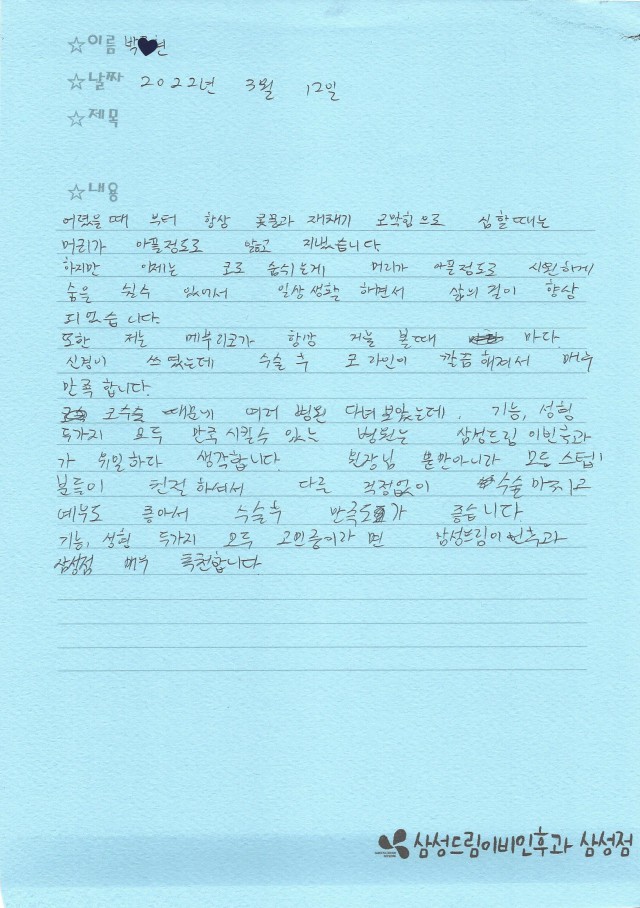 ☆이름 박 현
☆날짜 2022년 3월 12일
☆제목
☆내용
어렸을 때 부터 항상 콧물과 재채기 코막힘으로 심할때는
머리가 아플정도로 앓고 지냈습니다.
하지만 이제는 코로 숨쉬는게 머리가 아플정도로 시원하게
숨을 쉴수 있어서 일상생활 하면서 삶의 질이 향상
되었습니다.
또한 저는 메부리코가 항상 거울 볼때 마다.
신경이 쓰였는데 수술 후 코 라인이 깔끔해져서 매우
만족합니다.
코수술 때문에 여러 병원 다녀 보았는데. 기능, 성형
두가지 모두 만족 시킬수 있는 병원는 삼성드림 이빈후과
가 유일하다 생각합니다. 원장님 뿐만아니라 모든 스텝
분들이 친절하셔서 다른 걱정없이 수술 마치고
예후도 좋아서 수술후 만족도가 좋습니다
기능, 성형 두가지 모두 고민중이라면 삼성드림이빈후과
삼성점 매우 추천합니다.
삼성드림이비인후과 삼성점